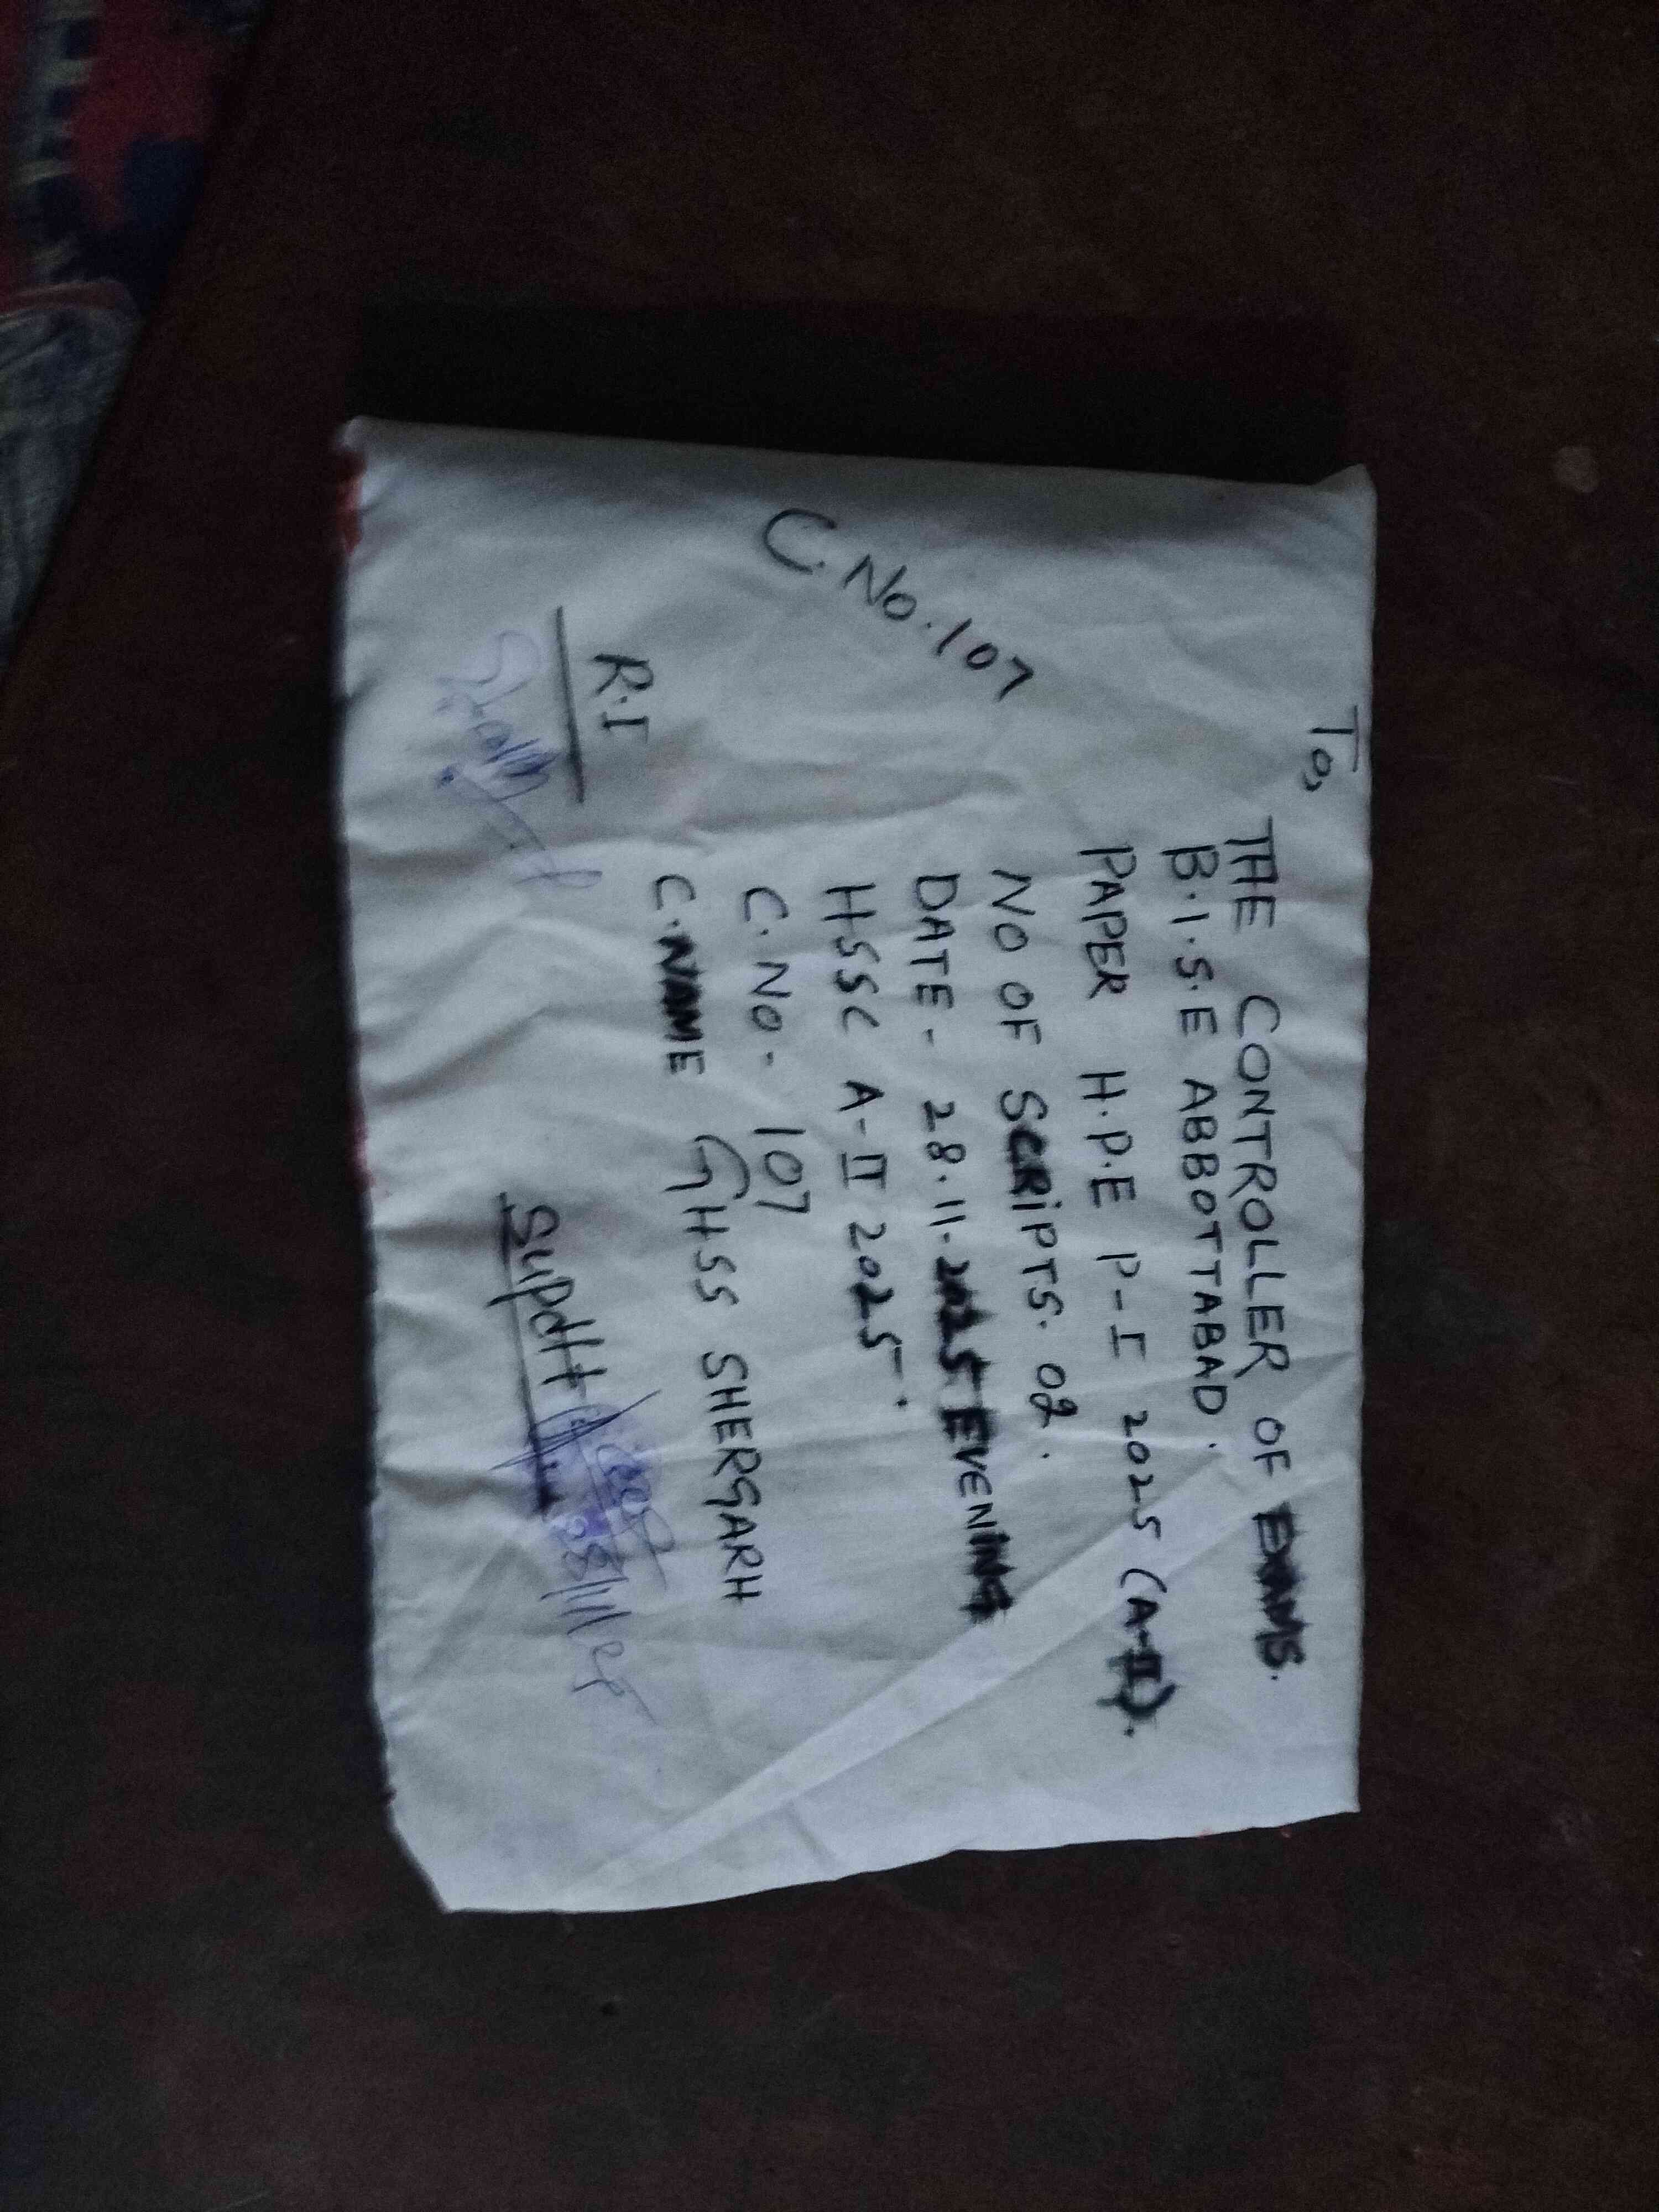 To,
THE CONTROLLER OF EXAMS.
B.I.S.E ABBOTTABAD.
PAPER H.P.E P-I 2025 (A-II).
NO OF SCRIPTS. 02.
DATE- 28.11.2025 EVENING
HSSC A-II 2025.
C.NO- 107
C.NAME GHSS SHERGARH
C.No.107
R.I
Supdtt
28/11/25